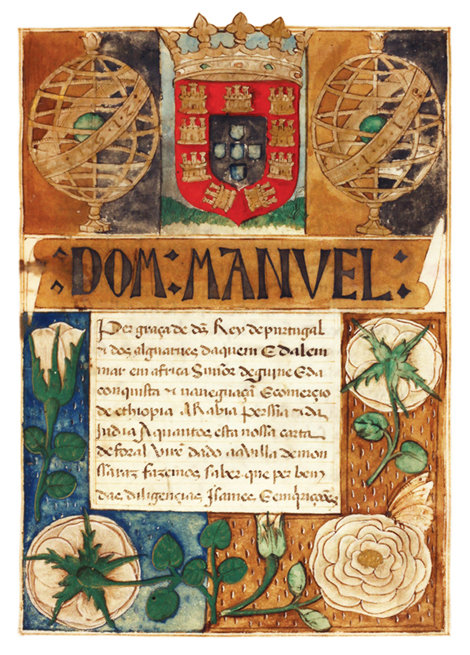 :DOM:MANVEL:
Per graça de dš Rey de purtugal
& dos alguarues daquem E dalem
mar em africa Sñnor de guine E da
conquista & naueguaçã E comerçio
de ethiopia Arabia persia & da
India A quantos esta nossa carta
de foral virẽ dado aa villa de mon
ssaraz fazemos saber que per bem
das diligençias Isamee E emqriçoões